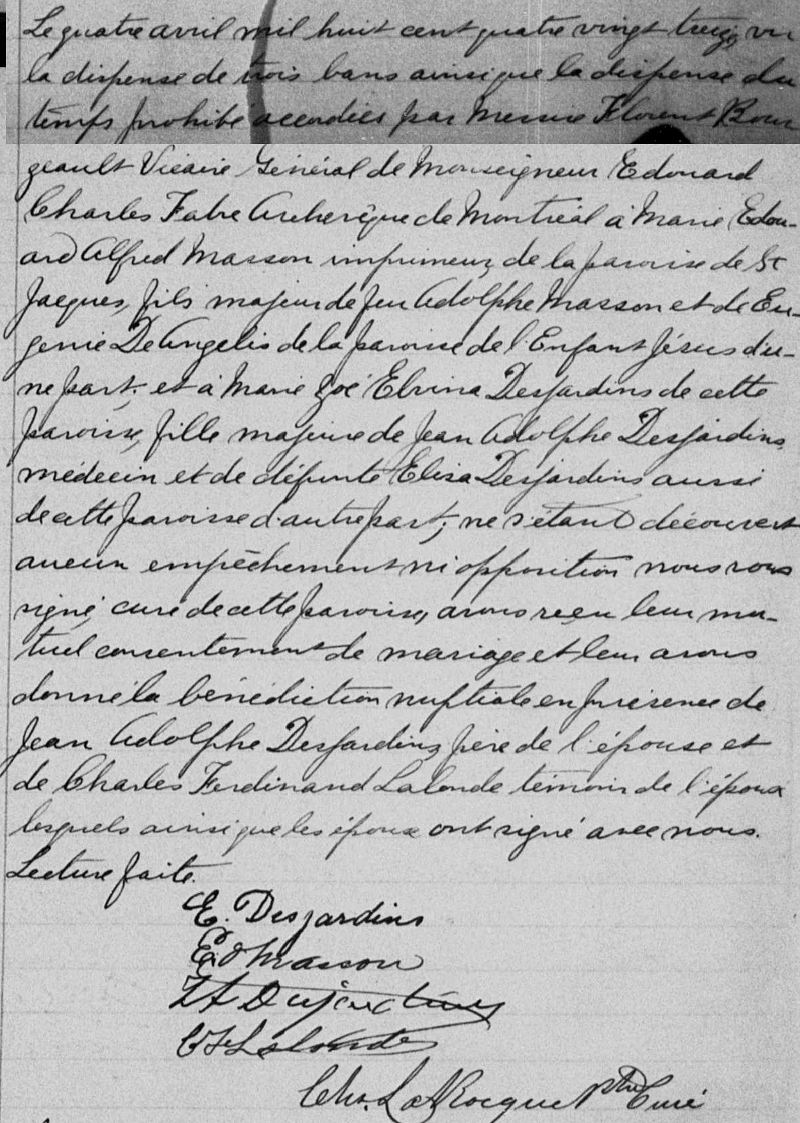 Le quatre avril mil huit cent quatre vingt treize, vu
la dispense de trois bans ainsi que la dispense du
temps prohibé accordées par Messire Florent Bour
geault Vicaire Général de Monseigneur Edouard
Charles Fabre Archevêque de Montréal à Marie Edou-
ard Alfred Masson imprimeur, de la paroisse de St
Jacques, fils majeur de feu Adolphe Masson et de Eu-
génie De Angelis de la paroisse de l'Enfant Jésus d'u-
ne part; et à Marie Zoé Elvina Desjardins de cette
paroisse, fille majeure de Jean Adolphe Desjardins
médecin et de défunte Elisa Desjardins aussi
de cette paroisse d'autre part; ne s'étant découvert
aucun empêchement ni opposition nous sous
signé, curé de cette paroisse, avons reçu leur mu-
tuel consentement de mariage et leur avons
donné la bénédiction nuptiale en présence de
Jean Adolphe Desjardins père de l'épouse et
de Charles Ferdinand Lalonde témoin de l'époux
lesquels ainsi que les époux ont signé avec nous.
Lecture faite.
E. Desjardins
Ed Masson
Desjardins
C F Lalonde
Chs. LaRocque ptre Curé